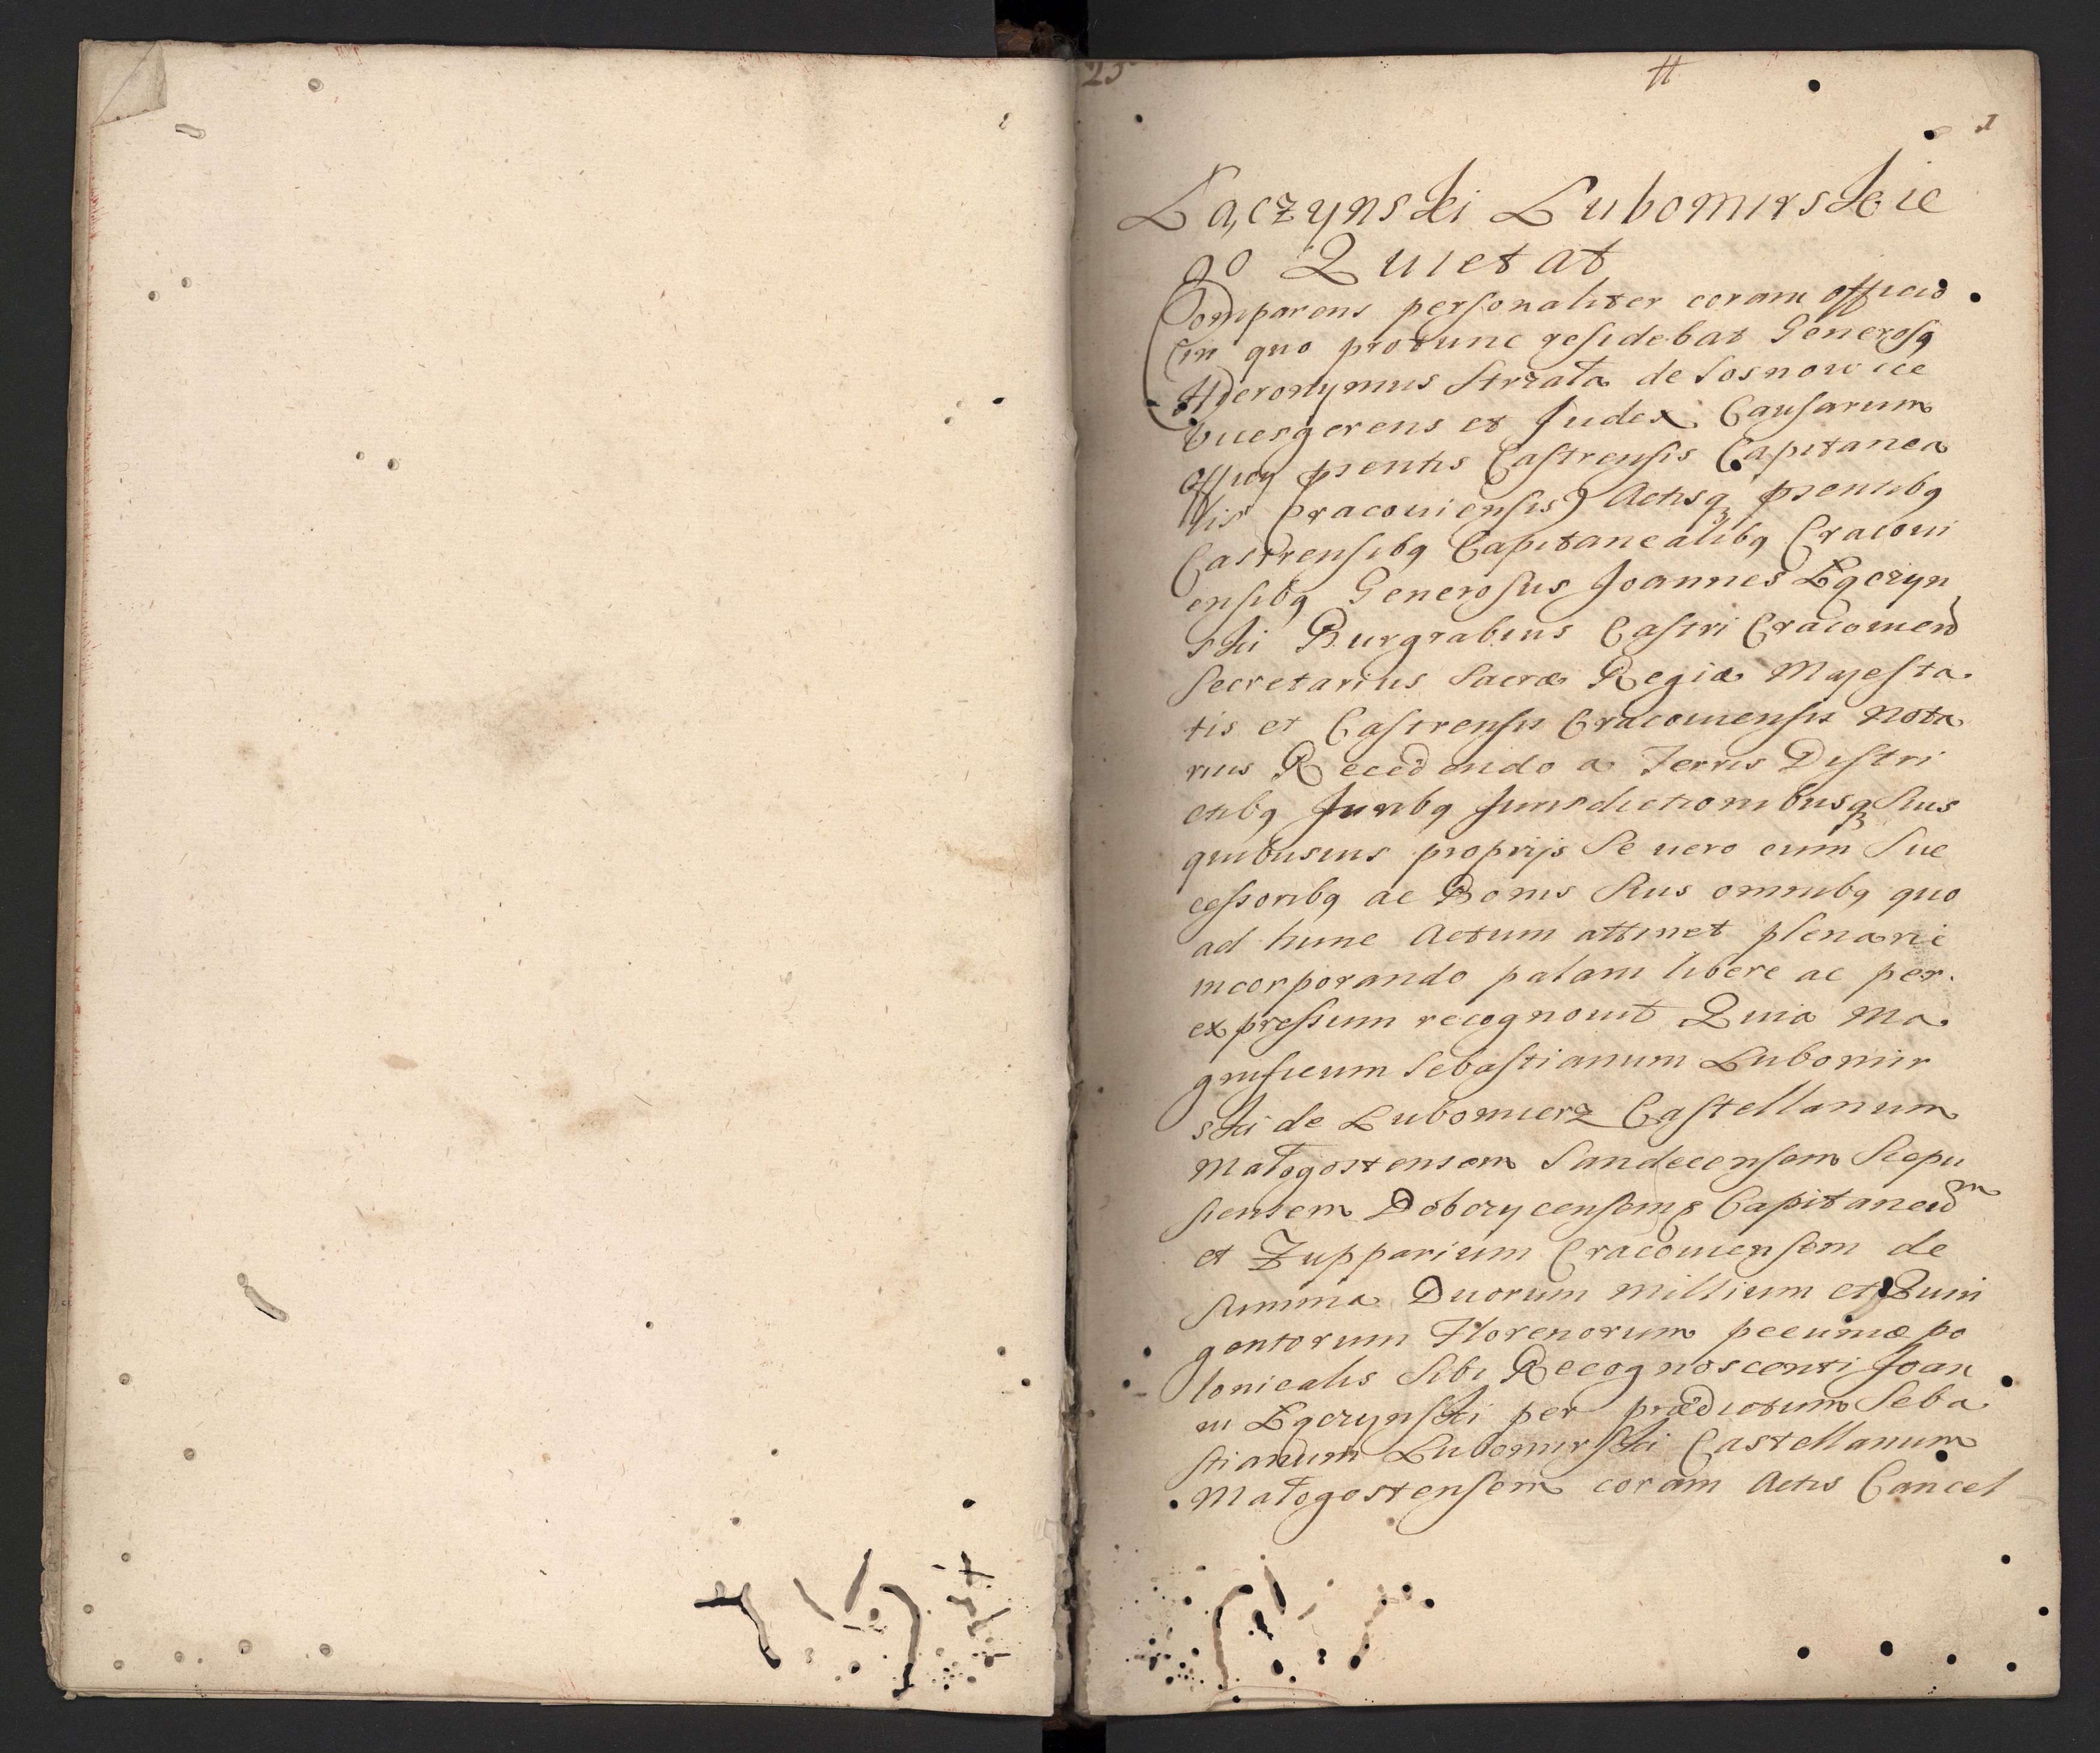 23
#
1
Łączynski Lubomirskie
go Quietat
Comparens personaliter coram officio
(in quo protunc residebat Generosq
Hieronymus Strzała de Sosnowice
Vicesgerens et Judex Causarum
officij pntis Castrensis Capitanea
lis Cracouiensis) Actisq pntibq
Castrensibq Capitanealibq Cracoui
ensibq Generosus Joannes Łączyn
ski Burgrabius Castri Cracouien
Secretarius Sacræ Regiæ Majesta
tis et Castrensis Cracouiensis Nota
rius Recedendo a Terris Distri
ctibq Juribq Jurisdictionibusq suis
quibusuis proprijs Se uero cum Suc
cessoribq ac Bonis Suis omnibq quo
ad hunc Actum attinet plenarie
incorporando palam libere ac per
expressum recognouit Quia Ma
gnificum Sebastianum Lubomir
ski de Lubomierz Castellanum
Małogostensem Sandecensem Scepu
siensem Dobczycensemq Capitaneum
et Zupparium Cracouiensem de
summa Duorum millium et Quin
gentorum Florenorum pecuniæ po
lonicalis Sibi Recognoscenti Joan
ni Łączynski per prædictum Seba
stianum Lubomirski Castellanum
Małogostensem coram Actis Cancel